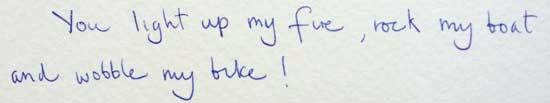 You light up my fire, rock my boat
and wobble my bike!